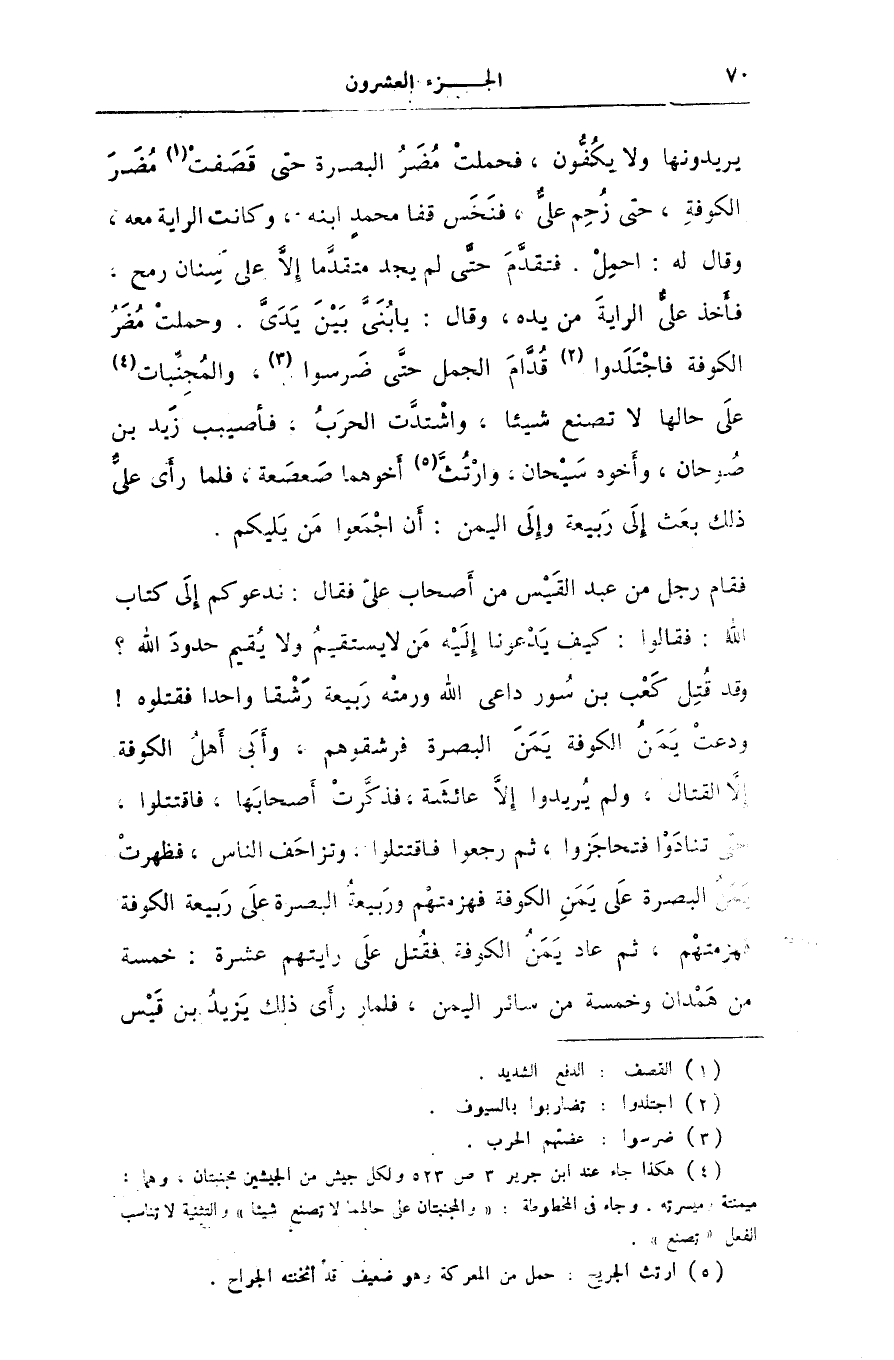 ٧٠
الجـــزء العشرون
يريدونها ولا يكُفُّون ، فحملتْ مُضَرُ البصرة حتى قَصَفتْ(١) مُضَـرَ
الكوفةِ ، حتى زُحِم علىٌّ ، فنَخَس قفا محمدٍ ابنه ، وكانت الراية معه ،
وقال له : احمِلْ . فتقدَّمَ حتَّى لم يجد متقدَّما إلاَّ على سِنان رمح ،
فأَخذ علىٌّ الرايةَ من يده ، وقال : يابُنَىَّ بَيْنَ يَدَىَّ . وحملتْ مُضَرُ
الكوفة فاجْتَلَدوا (٢) قُدَّامَ الجمل حتَّى ضَرسوا (٣) ، والمُجنِّبات(٤)
علَى حالها لا تصنع شيئا ، واشْتدَّت الحرَبُ ، فـأصيبب زَيد بن
صُوحان ، وأَخوه سَيْحان ، وارْتُثَّ(٥) أخوهما صَعصَعة ، فلما رأَى علىٌّ
ذلك بعَث إلَى رَبيعة وإلَى اليمن : أَن اجْمَعوا مَن يَليكم .
فقام رجل من عبد القَيْس من أَصحاب علىّ فقال : ندعوكم إلَى كتاب
الله : فقالوا : كيف يَدْعونا إلَيْه مَن لايستقيمُ ولا يُقيم حدودَ الله ؟
وقد قُتِل كَعْب بن سُور داعى الله ورمتْه رَبيعة رَشْقا واحدا فقتلوه !
ودعتْ يَمَنُ الكوفة يَمَنَ البصرة فرشقوهم ، وأَبَى أَهلُ الكوفة
إلَّا القتال ، ولم يُريدوا إلاَّ عائشة ، فذكَّرتْ أَصحابَها ، فاقتتلوا ،
حتَّى تنادَوْا فتحاجَزوا ، ثم رجعوا فاقتتلوا . وتزاحَف الناس ، فظهرتْ
يَمَنُ البصرة علَى يَمَنِ الكوفة فهزمتهْم ورَبيعةُ البصرة علَى رَبيعة الكوفة
فهزمتهْم ، ثم عاد يَمَنُ الكوفة فقُتل علَى رايتهم عشرة : خمسة
من هَمْدان وخمسة من سائر اليمن ، فلمار رأَى ذلك يَزيدُ بن قَيْس
(١) القصف : الدفع الشديد .
(٢) اجتلدوا : تضاربوا بالسيوف .
(٣) ضرسوا : عضتهم الحرب .
(٤) هكذا جاء عند ابن جرير ٣ ص ٥٢٣ ولكل جيش من الجيشين مجنبتان ، وهما :
ميمنتة وميسرته . وجاء فى المخطوطة : « والمجنبتان على حالهما لا تصنع شيئا » والتثنية لا تناسب
الفعل « تصنع » .
(٥) ارتث الجريح : حمل من المعركة وهو ضعيف قد أثخنته الجراح .